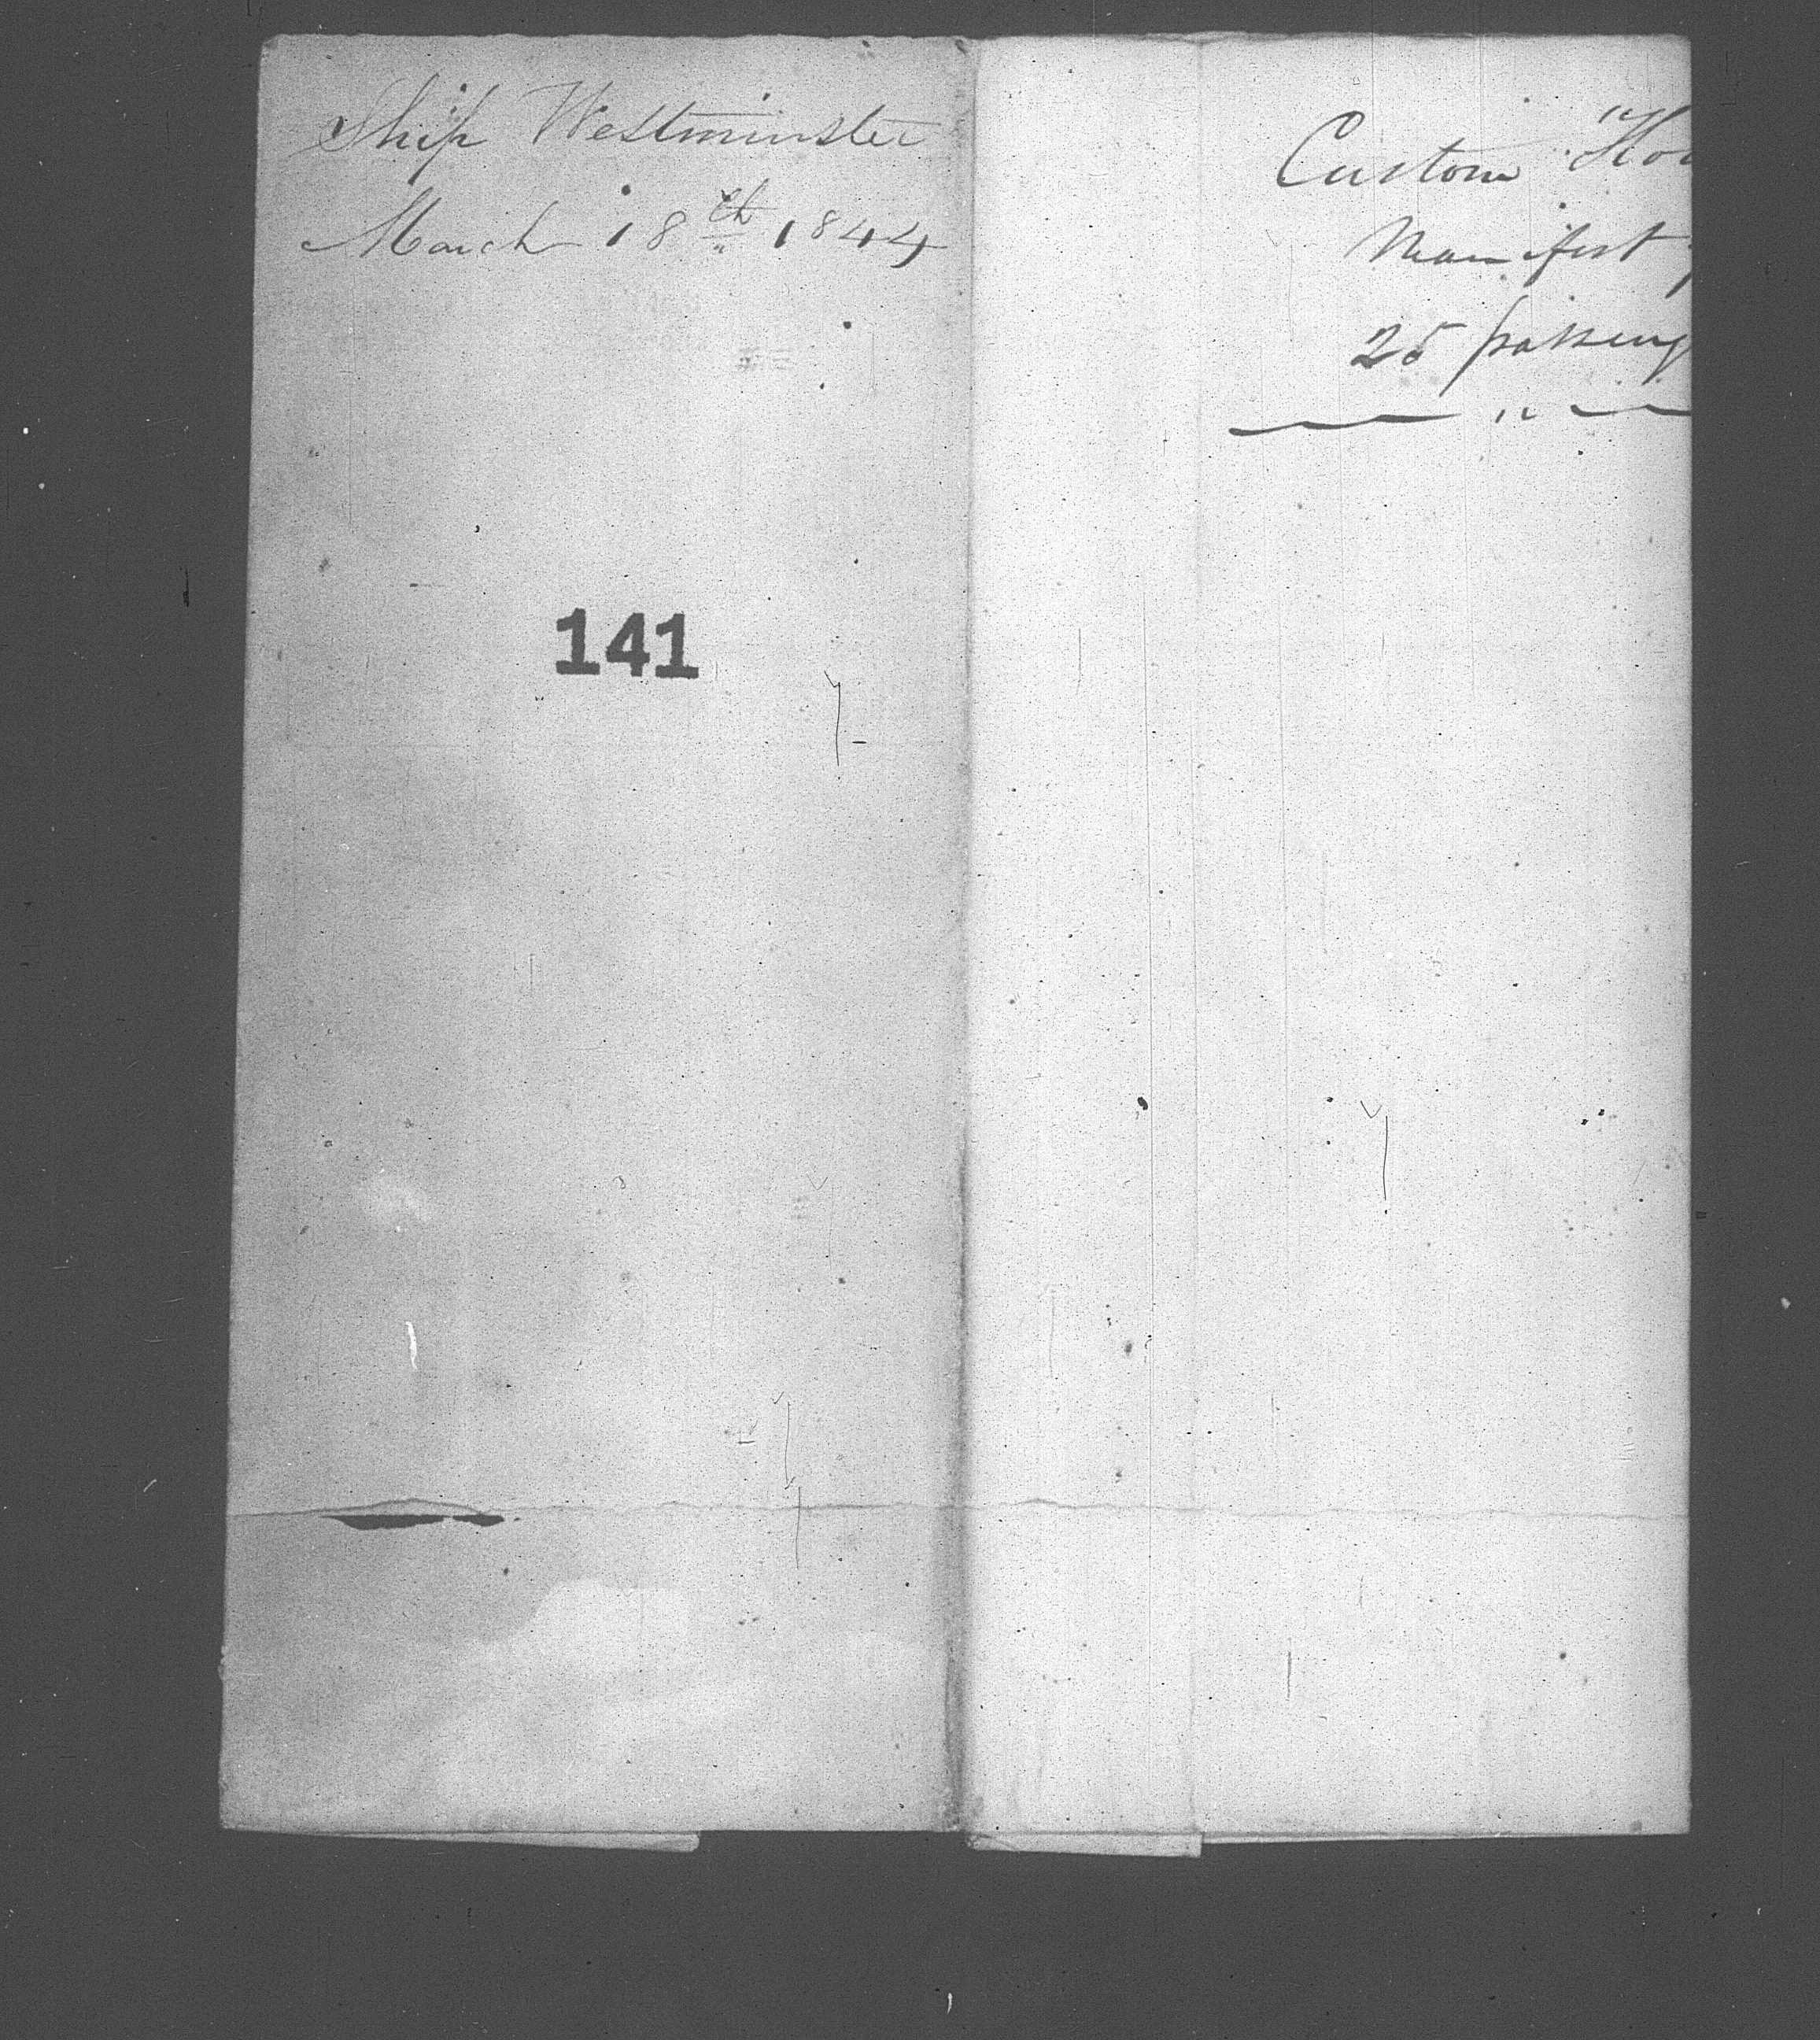 Ship Westminster
March 18th 1844
141
Custom Hou
Manifest
25 passeng